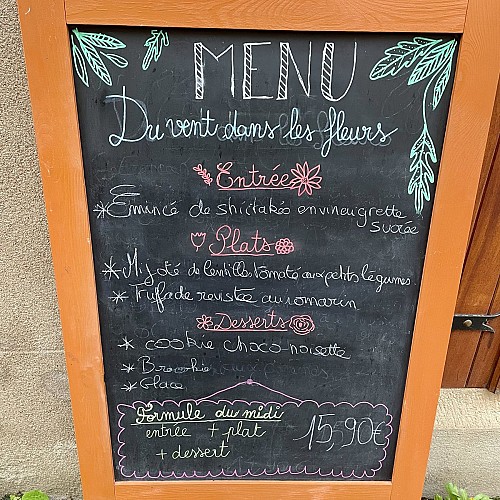 MENU
Du vent dans les fleurs
Entrée
* Émincé de shiitaké en vinaigrette
sucrée
Plats
* Mijoté de lentilles tomate aux petits légumes
* Truffade revisitée au romarin
Desserts
* cookie choco-noisette
* Brookie
* Glace
Formule du midi
entrée + plat
+ dessert
15,90€